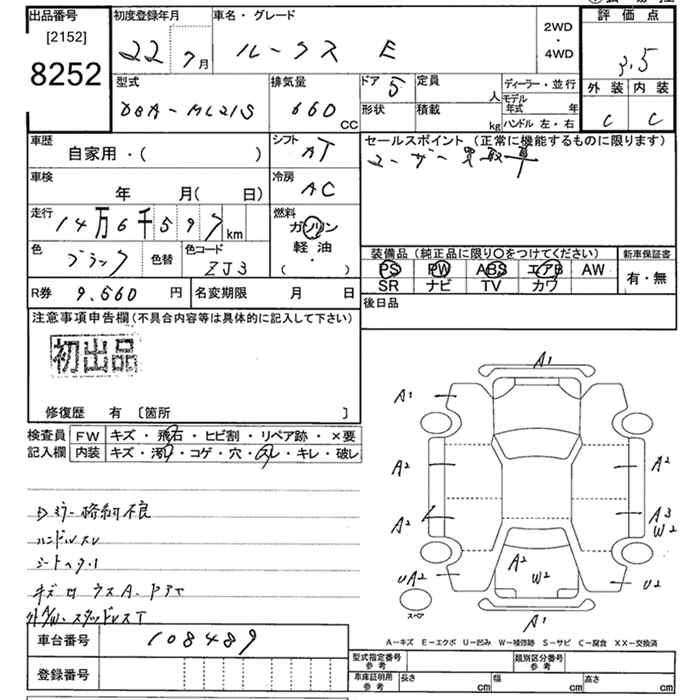 出品番号
[2152]
8252
初度登録年月
22年7月
車名・グレード
ルークス E
2WD
・
4WD
評価点
3.5
外装 内装
C C
型式
DBA-ML21S
排気量
660 CC
ドア 5
形状
定員 人
積載 kg
ディーラー・並行
モデル年式 年
ハンドル 左・右
車歴
自家用・( )
シフト
AT
セールスポイント (正常に機能するものに限ります)
ユーザー買取車
車検
年 月( 日)
冷房
AC
走行
14万6千597km
燃料
ガソリン
軽油
( ・ )
色
ブラック
色替
色コード
ZJ3
装備品 (純正品に限り○をつけてください)
新車保証書
PS PW ABS エアB AW
SR ナビ TV カワ
有・無
R券 9.560 円
名変期限 月 日
後日品
注意事項申告欄(不具合内容等は具体的に記入して下さい)
初出品
修復歴 有 [箇所 ]
検査員
記入欄
FW キズ・飛石・ヒビ割・リペア跡・×要
内装 キズ・汚れ・コゲ・穴・スレ・キレ・破レ
Dミラー格納不良
ハンドルスレ
シートヘタリ
外AW.スタッドレスT
A1
A1
A2
A2
A2
A3
W2
UA2
A2
W2
U2
A1
スペア
A-キズ E-エクボ U-凹み W-補修跡 S-サビ C-腐食 XX-交換済
車台番号 108489
登録番号
型式指定番号
参考
類別区分番号
参考
車庫証明用
参考
長さ cm
幅 cm
高さ cm